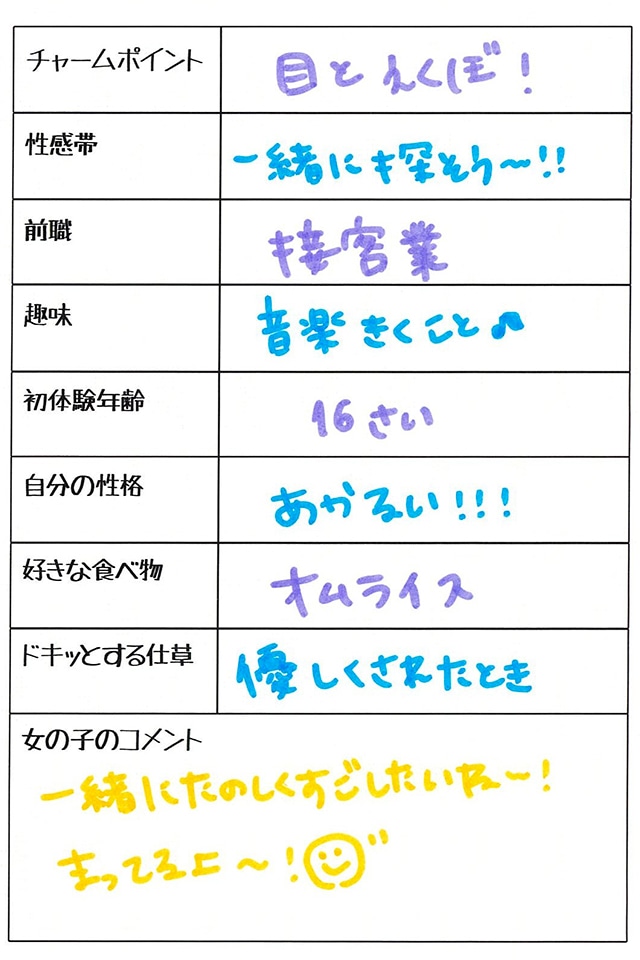 チャームポイント 目とえくぼ!
性感帯 一緒に探そう〜!!
前職 接客業
趣味 音楽きくこと♪
初体験年齢 16さい
自分の性格 あかるい!!!
好きな食べ物 オムライス
ドキッとする仕草 優しくされたとき
女の子のコメント
一緒にたのしくすごしたいね〜!
まってるよ〜!